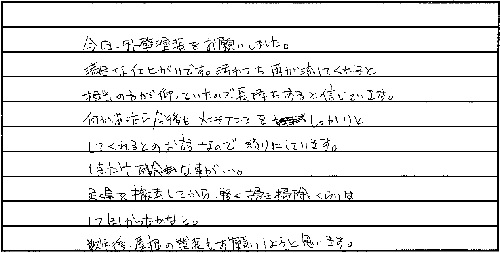 今回、外壁塗装をお願いしました。
満足な仕上がりです。汚れても雨が流してくれると
担当の方が仰っていたので長持ちすると信じています。
何かあったら今後もメンテナンスをしっかりと
してくれるとのお話なので頼りにしています。
1点だけ残念な事が…。
足場を撤去してから、軽く掃き掃除くらいは
してほしかったかなと。
数年後、屋根の塗装もお願いしようと思います。